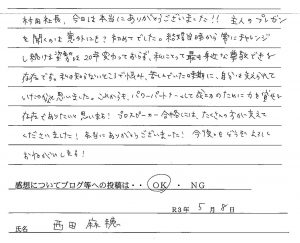 村田社長、今日は本当にありがとうございました!! 主人のプレゼン
を聞くのは意外にも?初めてでした。結婚当時から常にチャレンジ
し続ける姿勢は20年変わっておらず、私にとって最も身近な尊敬できる
存在です。私の知らないところで悩み、苦しんでいた時期に自分は支えられて
いたのかなと思いました。これからも、パワーパートナーとして成功のために力を貸せる
存在でありたいと思います! プロスピーカー合格には、たくさんの方が支えて
くださいました! 本当にありがとうございました! 今後ともどうぞよろしく
おねがいします!
感想についてブログ等への投稿は・・OK・NG
R3年 5月 8日
氏名 西田 麻穂